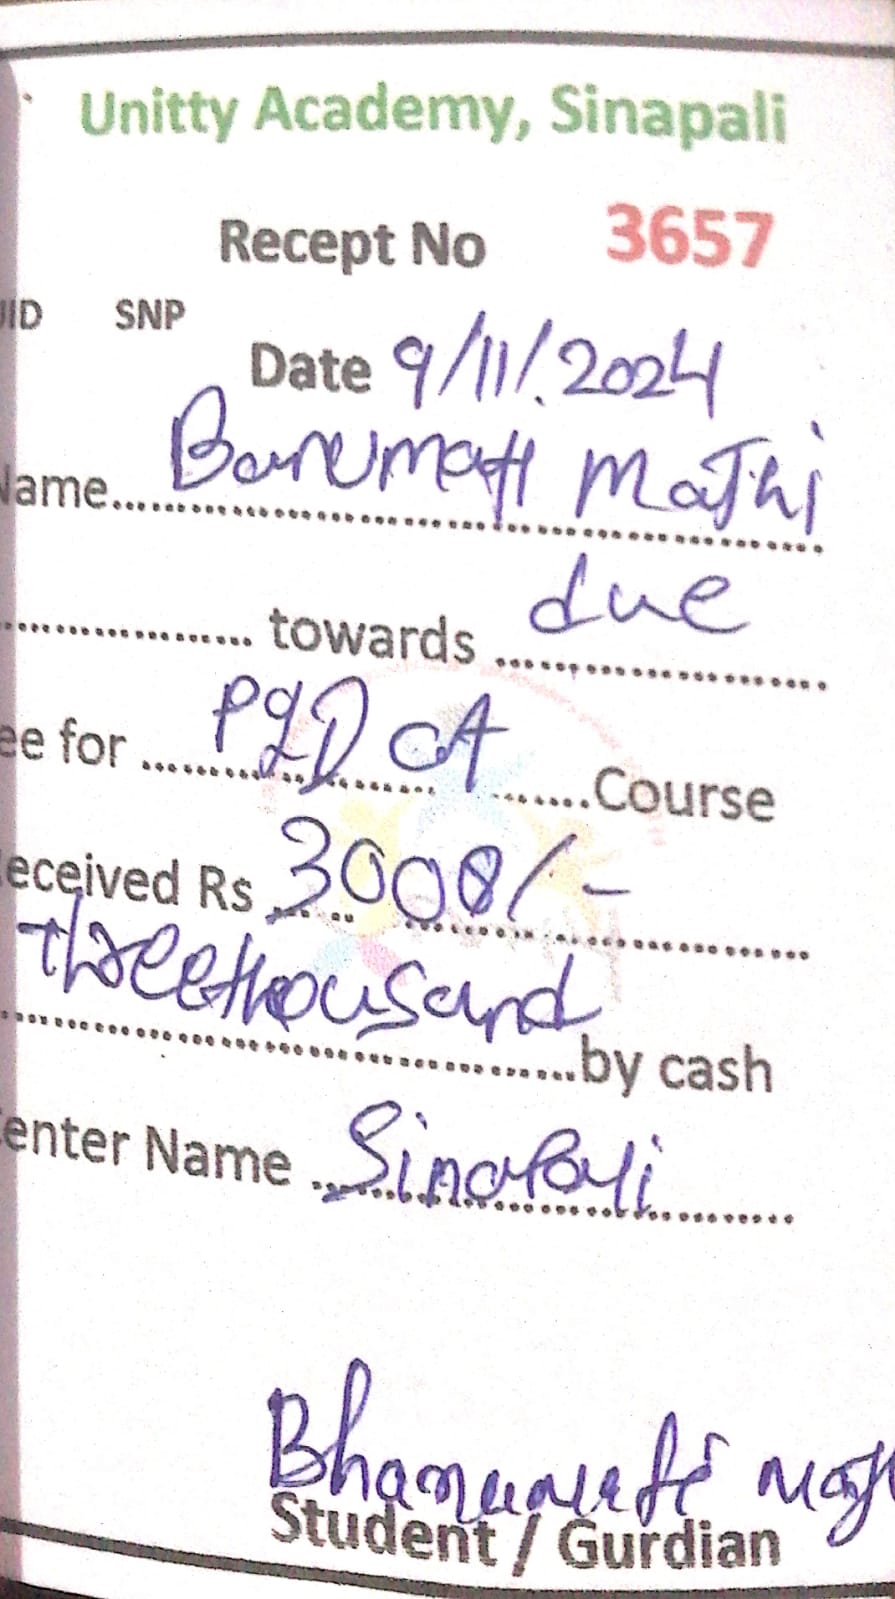 Unitty Academy, Sinapali
Recept No 3657
UID SNP
Date 9/11/2024
Name.... Banumati Majhi
.................... towards due
ee for .... PGDCA .......Course
eceived Rs 3000/-
threethousand
....................by cash
enter Name .... Sinapali
Bhanumati Majh
Student / Gurdian